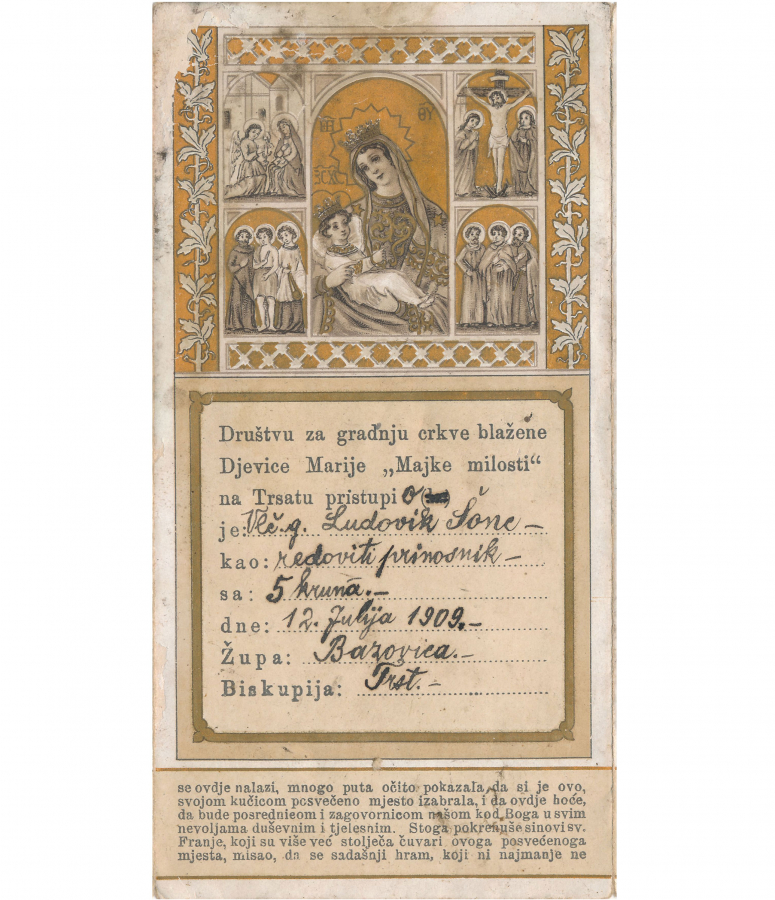 ΜΗ ΘΥ
Društvu za gradnju crkve blažene
Djevice Marije „Majke milosti“
na Trsatu pristupi o
je: Vlč. g. Ludovik Šonc –
kao: redoviti prinosnik –
sa: 5 kruna. –
dne: 12. Julija 1909. –
Župa: Bazovica. –
Biskupija: Trst. –
se ovdje nalazi, mnogo puta očito pokazala da si je ovo,
svojom kućicom posvečeno mjesto izabrala, i da ovdje hoće,
da bude posrednicom i zagovornicom našom kod Boga u svim
nevoljama duševnim i tjelesnim. Stoga pokrenuše sinovi sv.
Franje, koji su više već stolječa čuvari ovoga posvećenoga
mjesta, misao, da se sadašnji hram, koji ni najmanje ne